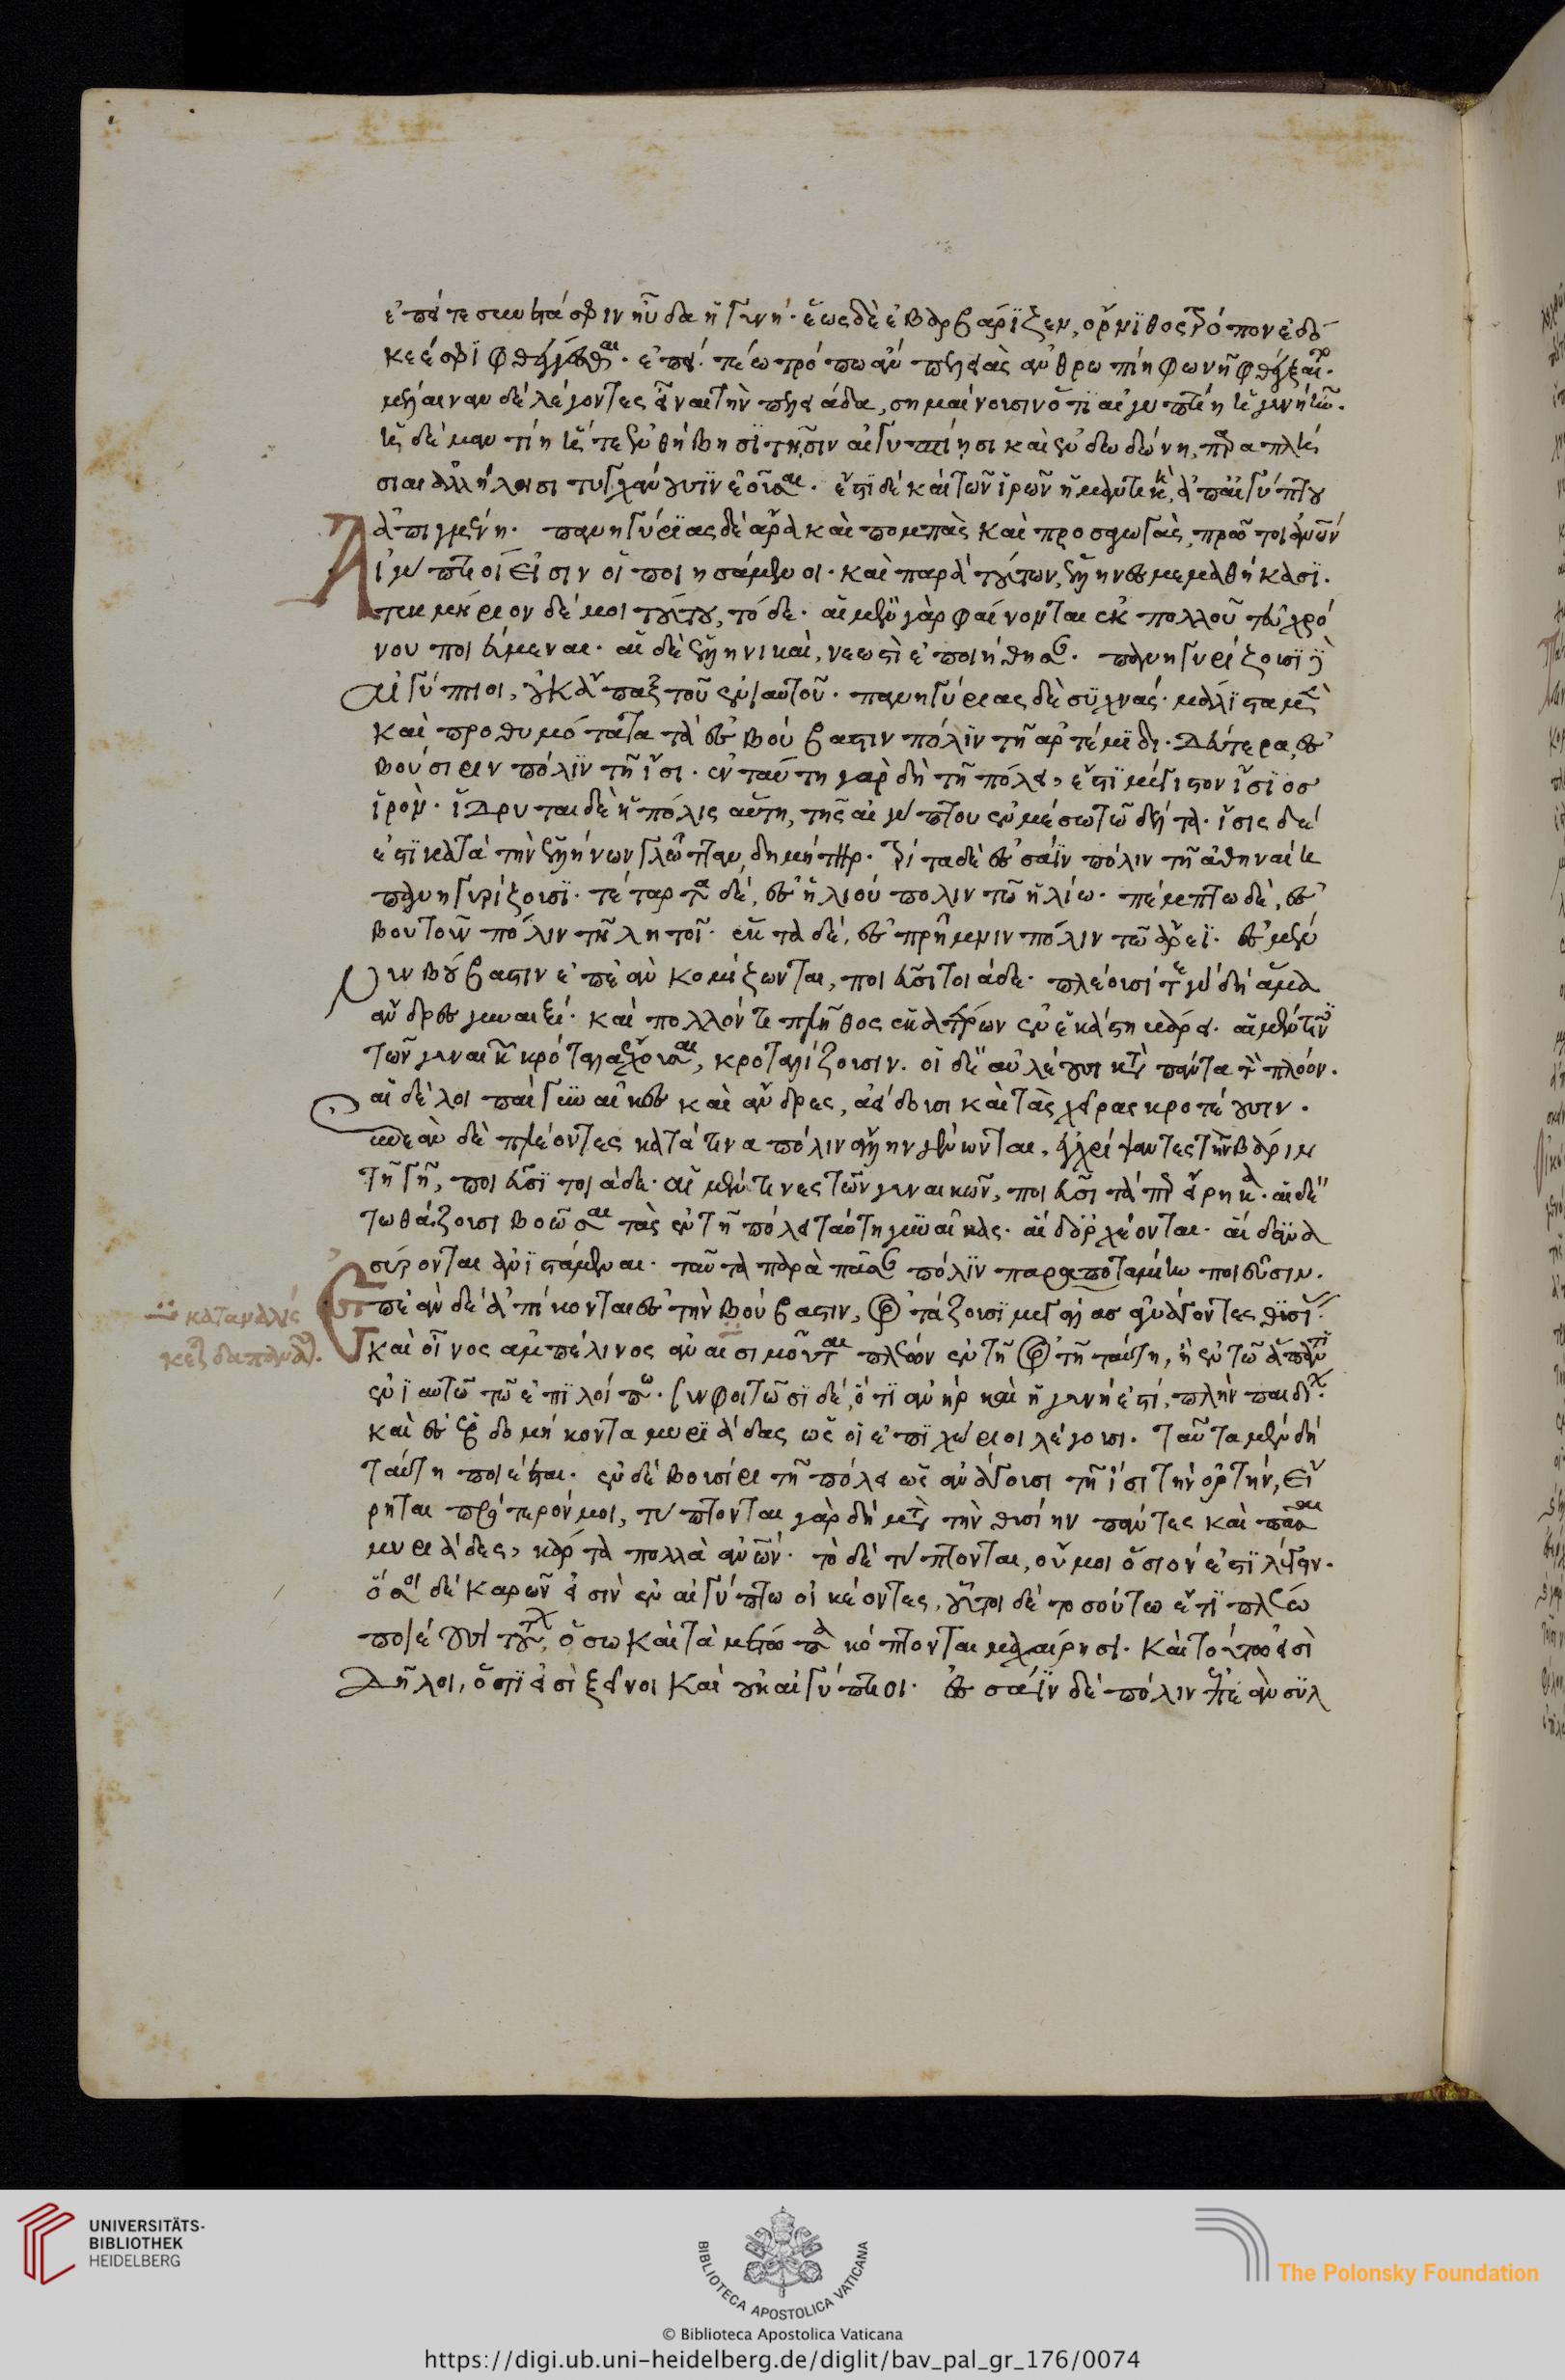 ἐπεί τε συνετά σφιν ηὔδα ἡ γυνή· ἕως δὲ ἐβαρβάριζεν, ὄρνιθος τρόπον ἐδό
κεέ σφι φθέγγεσθαι· ἐπεὶ τέῳ τρόπῳ ἂν πελειὰς ἀνθρωπίνη φωνῇ φθέγξαιτο·
μέλαιναν δὲ λέγοντες εἶναι τὴν πελειάδα, σημαίνουσιν ὅτι αἰγυπτίη ἡ γυνὴ ἦν.
ἡ δὲ μαντίη ἥ τε ἐν θήβῃσι τῇσιν αἰγυπτίῃσι καὶ ἐν δωδώνῃ, παραπλή
σιαι ἀλλήλοισι τυγχάνουσιν ἐοῦσαι. ἔστι δὲ καὶ τῶν ἱρῶν ἡ μαντικὴ, ἀπ' αἰγύπτου
ἀπιγμένη. πανηγύριας δὲ ἄρα καὶ πομπὰς καὶ προσαγωγὰς, πρῶτοι ἀνῶν
Αἰγύπτιοί εἰσιν οἱ ποιησάμενοι· καὶ παρὰ τούτων, ἕλληνες μεμαθήκασι.
τεκμήριον δέ μοι τούτου, τόδε· αἱ μὲν γὰρ φαίνονται ἐκ πολλοῦ τευ χρό
νου ποιεύμεναι· αἱ δὲ ἑλληνικαὶ, νεωστὶ ἐποιήθησαν. πανηγυρίζουσι δὲ
αἰγύπτιοι, οὐκ ἅπαξ τοῦ ἐνιαυτοῦ· πανηγύριας δὲ συχνάς· μάλιστα μὲν
καὶ προθυμότατα τὰ ἐς βούβαστιν πόλιν τῇ ἀρτέμιδι. δεύτερα, ἐς
βούσιριν πόλιν τῇ ἴσι. ἐν ταύτῃ γὰρ δὴ τῇ πόλει, ἐστὶ μέγιστον ἴσιος
ἱρόν· ἵδρυται δὲ ἡ πόλις αὕτη, τῆς αἰγύπτου ἐν μέσῳ τῷ δέλτα· ἶσις δέ
ἐστι κατὰ τὴν ἑλλήνων γλῶτταν, δημήτηρ. τρίτα δὲ ἐς σάϊν πόλιν τῇ ἀθηναίῃ
πανηγυρίζουσι· τέταρτα δὲ, ἐς ἡλιούπολιν τῷ ἡλίῳ· πέμπτῳ δὲ, ἐς
βουτοῦν πόλιν τῇ λητοῖ· ἕκτα δὲ, ἐς πρῆμμιν πόλιν τῷ ἄρεϊ. ἐς μέν
νυν βούβαστιν ἐπεὰν κομίζωνται, ποιεῦσι τοιάδε· πλέουσί τε γὰρ δὴ ἅμα
ἄνδρες γυναιξί· καὶ πολλόν τι πλῆθος ἑκατέρων ἐν ἑκάστῃ βάρει· αἱ μέν τινες
τῶν γυναικῶν κρόταλα ἔχουσαι, κροταλίζουσιν. οἱ δὲ αὐλέουσι κατὰ πάντα τὸν πλόον.
αἱ δὲ λοιπαὶ γυναῖκες καὶ ἄνδρες, ἀείδουσι καὶ τὰς χεῖρας κροτέουσιν.
ἐπεὰν δὲ πλέοντες κατά τινα πόλιν ἄλλην γένωνται, ἐγχρίψαντες τὴν βάριν
τῇ γῇ, ποιεῦσι τοιάδε· αἱ μέν τινες τῶν γυναικῶν, ποιεῦσι τά περ εἴρηκα· αἱ δὲ
τωθάζουσι βοῶσαι τὰς ἐν τῇ πόλει ταύτῃ γυναῖκας· αἱ δ' ὀρχέονται· αἱ δ' ἀνα
σύρονται ἀνιστάμεναι. ταῦτα παρὰ πᾶσαν πόλιν παραποταμίην ποιεῦσιν.
ἐπεὰν δὲ ἀπίκονται ἐς τὴν βούβαστιν, ὁρτάζουσι μεγάλας ἀνάγοντες θυσίας.
καὶ οἶνος ἀμπέλινος ἀναισιμοῦται πλέον ἐν τῇ ὁρτῇ ταύτῃ, ἢ ἐν τῷ ἅπαντι
ἐνιαυτῷ τῷ ἐπιλοίπῳ. συμφοιτῶσι δέ, ὅ τι ἀνὴρ καὶ ἡ γυνή ἐστι, πλὴν παιδίων
καὶ ἐς ἑβδομήκοντα μυριάδας ὡς οἱ ἐπιχώριοι λέγουσι. ταῦτα μὲν δὴ
ταύτῃ ποιέεται. ἐν δὲ βουσίρι τῇ πόλει ὡς ἀνάγουσι τῇ ἴσι τὴν ὁρτὴν, εἴ
ρηται πρότερόν μοι, τύπτονται γὰρ δὴ μετὰ τὴν θυσίην πάντες καὶ πᾶσαι
μυριάδες, κάρτα πολλαὶ ἀνῶν· τὸ δὲ τύπτονται, οὔ μοι ὅσιόν ἐστι λέγειν.
ὅσοι δὲ καρῶν εἰσὶν ἐν αἰγύπτῳ οἰκέοντες, οὗτοι δὲ τοσούτῳ ἔτι πλέω
ποιέουσι τούτων, ὅσῳ καὶ τὰ μέτωπα κόπτονται μαχαίρῃσι. καὶ τούτῳ εἰσὶ
δῆλοι, ὅτι εἰσὶ ξεῖνοι καὶ οὐκ αἰγύπτιοι. ἐς σάϊν δὲ πόλιν ἐπεὰν συλ
καταναλίσ
κεται δαπανᾶται.
UNIVERSITÄTS-
BIBLIOTHEK
HEIDELBERG
BIBLIOTECA APOSTOLICA VATICANA
The Polonsky Foundation
© Biblioteca Apostolica Vaticana
https://digi.ub.uni-heidelberg.de/diglit/bav_pal_gr_176/0074